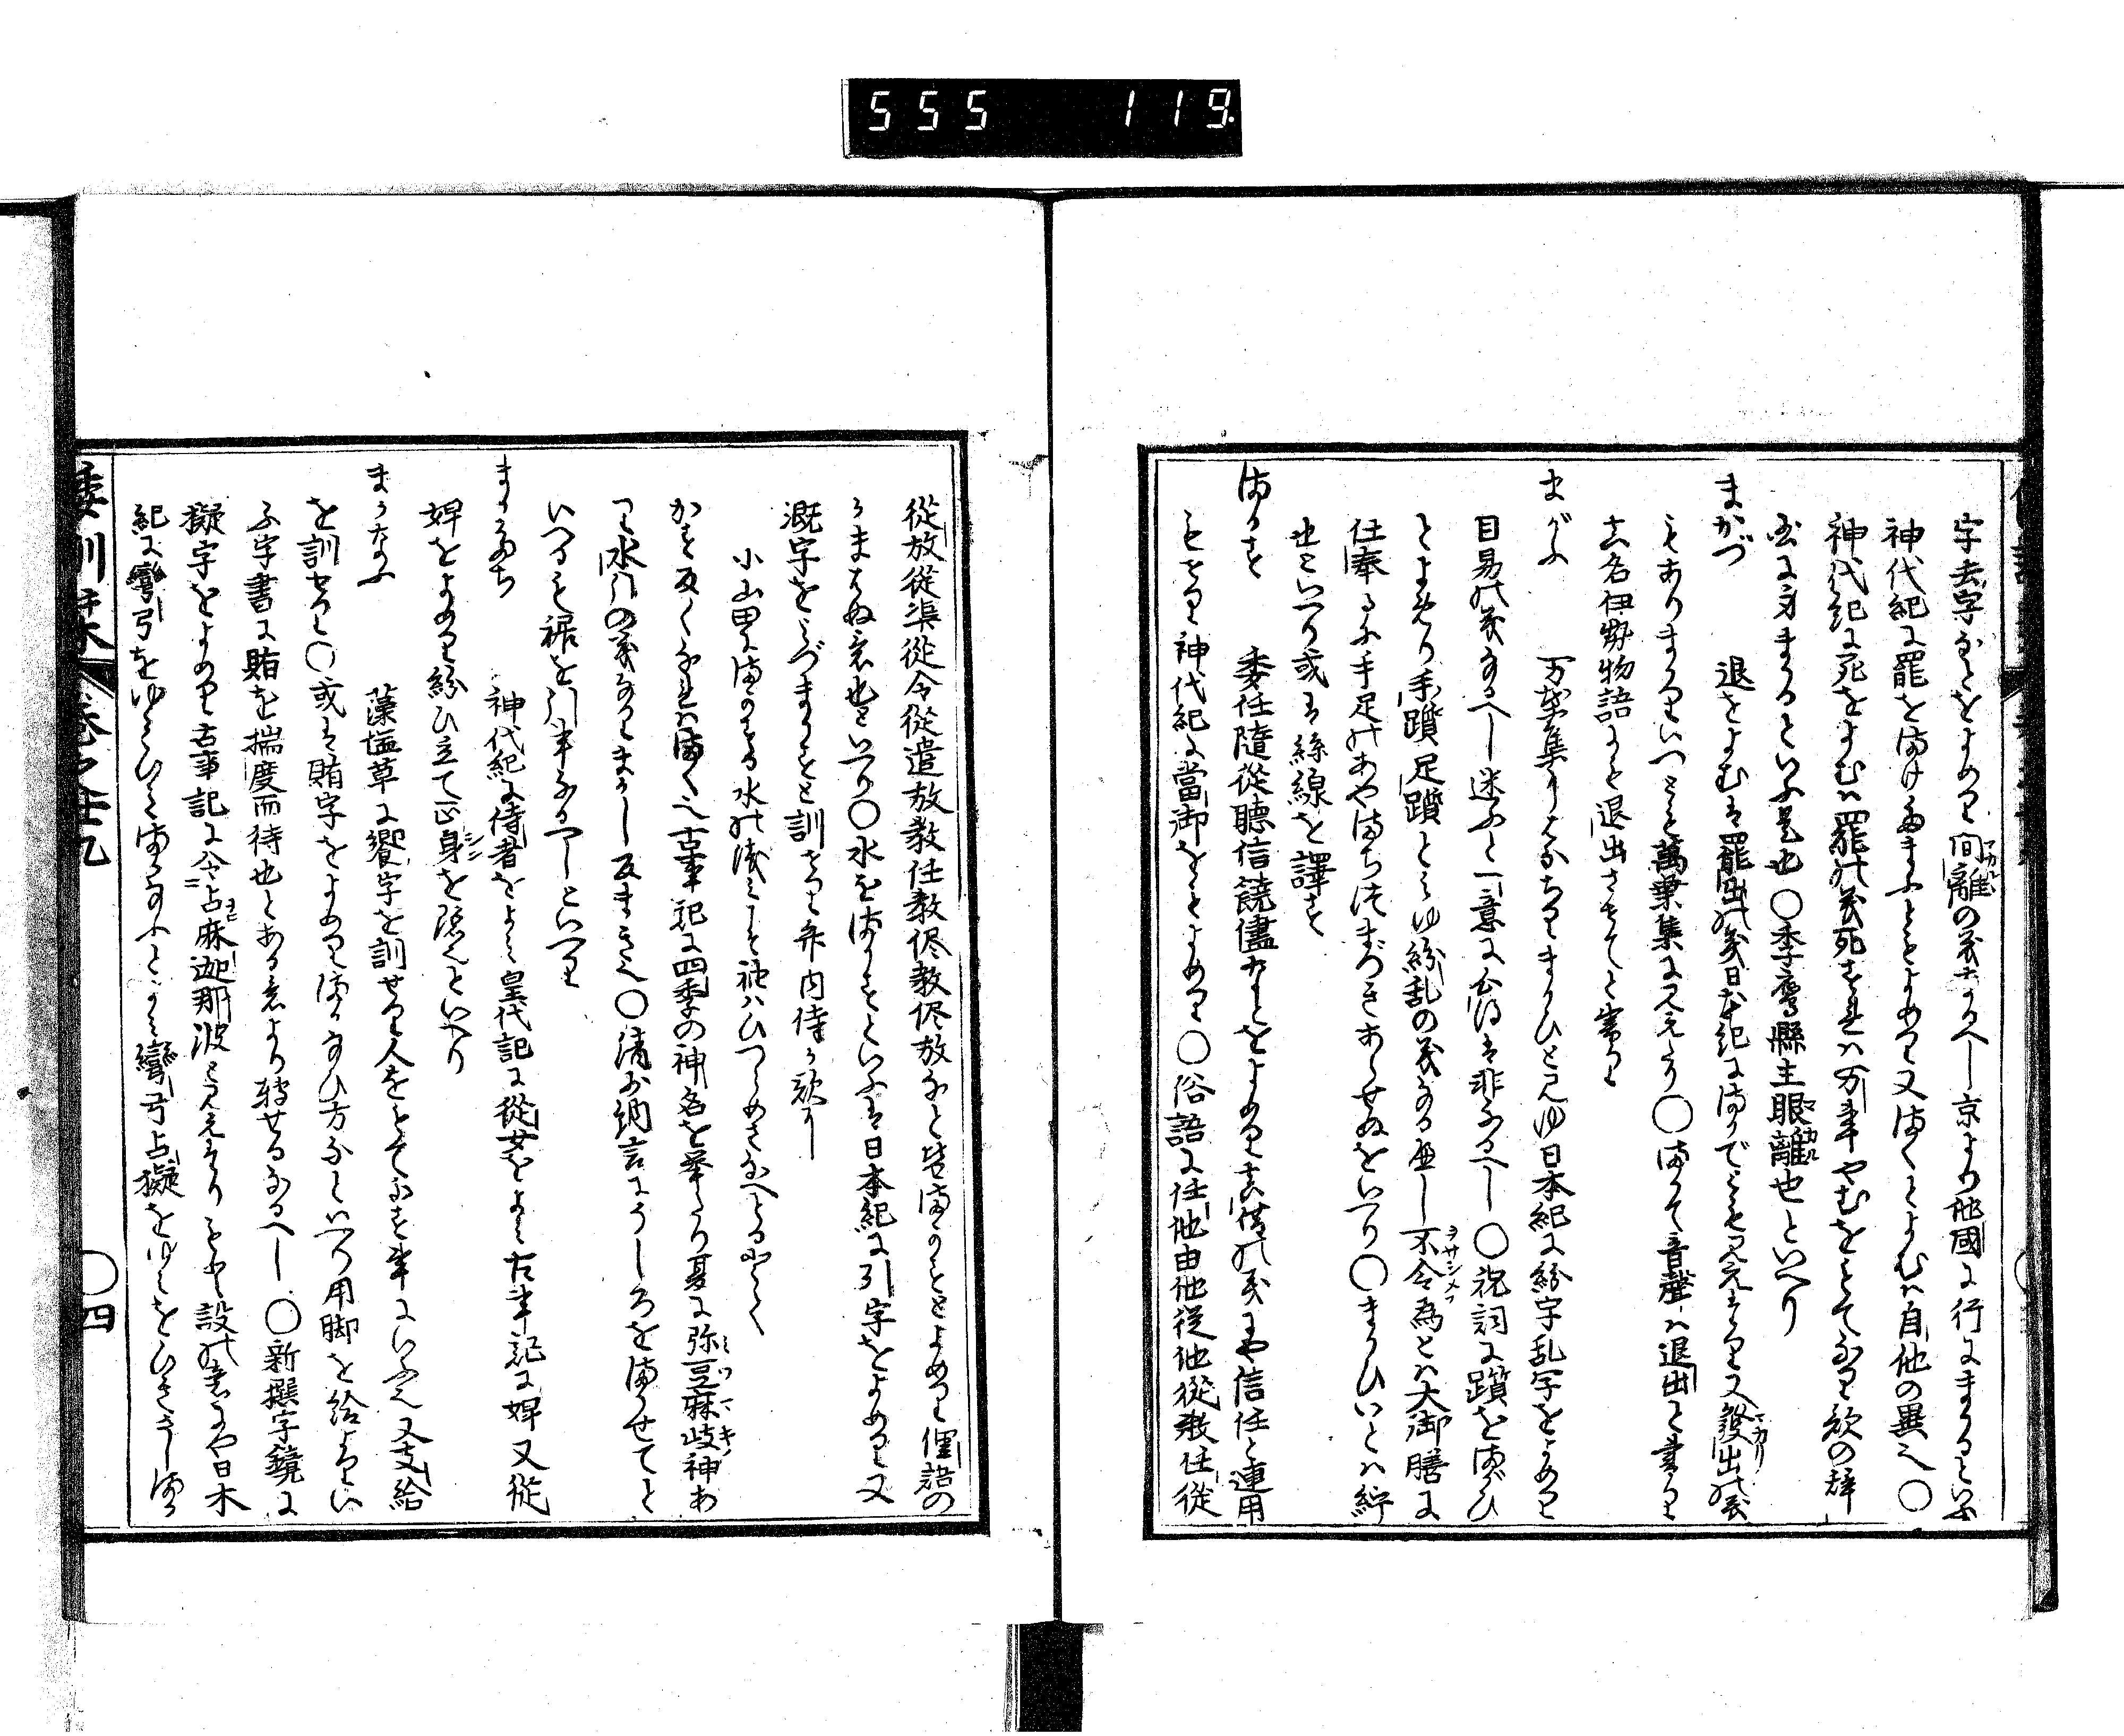 555 119.
字去字なとをよめり間離の義なるへし京より他國に行にまかるといふ
神代紀に罷をまけたまふともよめり又まくとよむハ自他の異也〇
神代紀に死をよむハ罷の義死すれハ万事やむをもてなり歌の辞
書に身まかるといふ是也〇季鷹縣主眼離也といへり
まかづ 退をよむは罷出の義日本紀にまかでとも見えたり又發出の義
もありまかりいつとも萬葉集に見えたり〇まかて音聲ハ退出と書り
真名伊勢物語にも退出させてと書り
まがふ 万葉集にちりまかひと見ゆ日本紀に紛字乱字をよめり
目易の義なるへし迷ふと一意に心得は非なるへし〇祝詞に躓をまがひ
とよめり手躓足躓とみゆ紛乱の義なる歟し不令為とハ大御膳に
仕奉るに手足のあやまちつまづきあらせぬをいへり〇まかひいとハ紵
也といへり或は絲線を譯す
まかす 委任隨從聽信饒儘なとをよめり真借の義にや信任と連用
もせり神代紀に當御をもよめり〇俗語に任他由他従他從教任従
從放從渠從令從遣放教任教侭教侭放なと皆まかすとよめり俚語の
かまはぬ意也といへり〇水をまかすといふは日本紀に引字をよめり又
漑字をみづまかすと訓せり弁内侍か歌に
小山田にまかする水の浅みこそ袖ハひつらめさなへとるとて
かを反くなれハまく也古事記に四季の神名を挙たり夏に弥豆麻岐神あ
り水引の義なりまかし反まき也〇清少納言にうしろをまかせてと
いへるも裾を引事なるへしといへり
まかたち 神代紀に侍者をよみ皇代記に從女をよみ古事記に婢又從
婢をよめり紛ひ立て正身を隠んといへり
まかなふ 藻塩草に饗字を訓せり人をもてなす事にいふ也又支給
を訓せり〇或は賄字をよめりまかなひ方なといへり用脚を給るをい
ふ字書に賄を揣度而待也とある意より轉せるなるへし〇新撰字鏡に
擬字をよめり古事記に令占麻迦那波と見えたりもと設の意にや日本
紀に彎弓をゆみひきまかなふとよみ彎弓占擬をゆみをひきさしまか
倭訓栞 巻之廿九 〇四